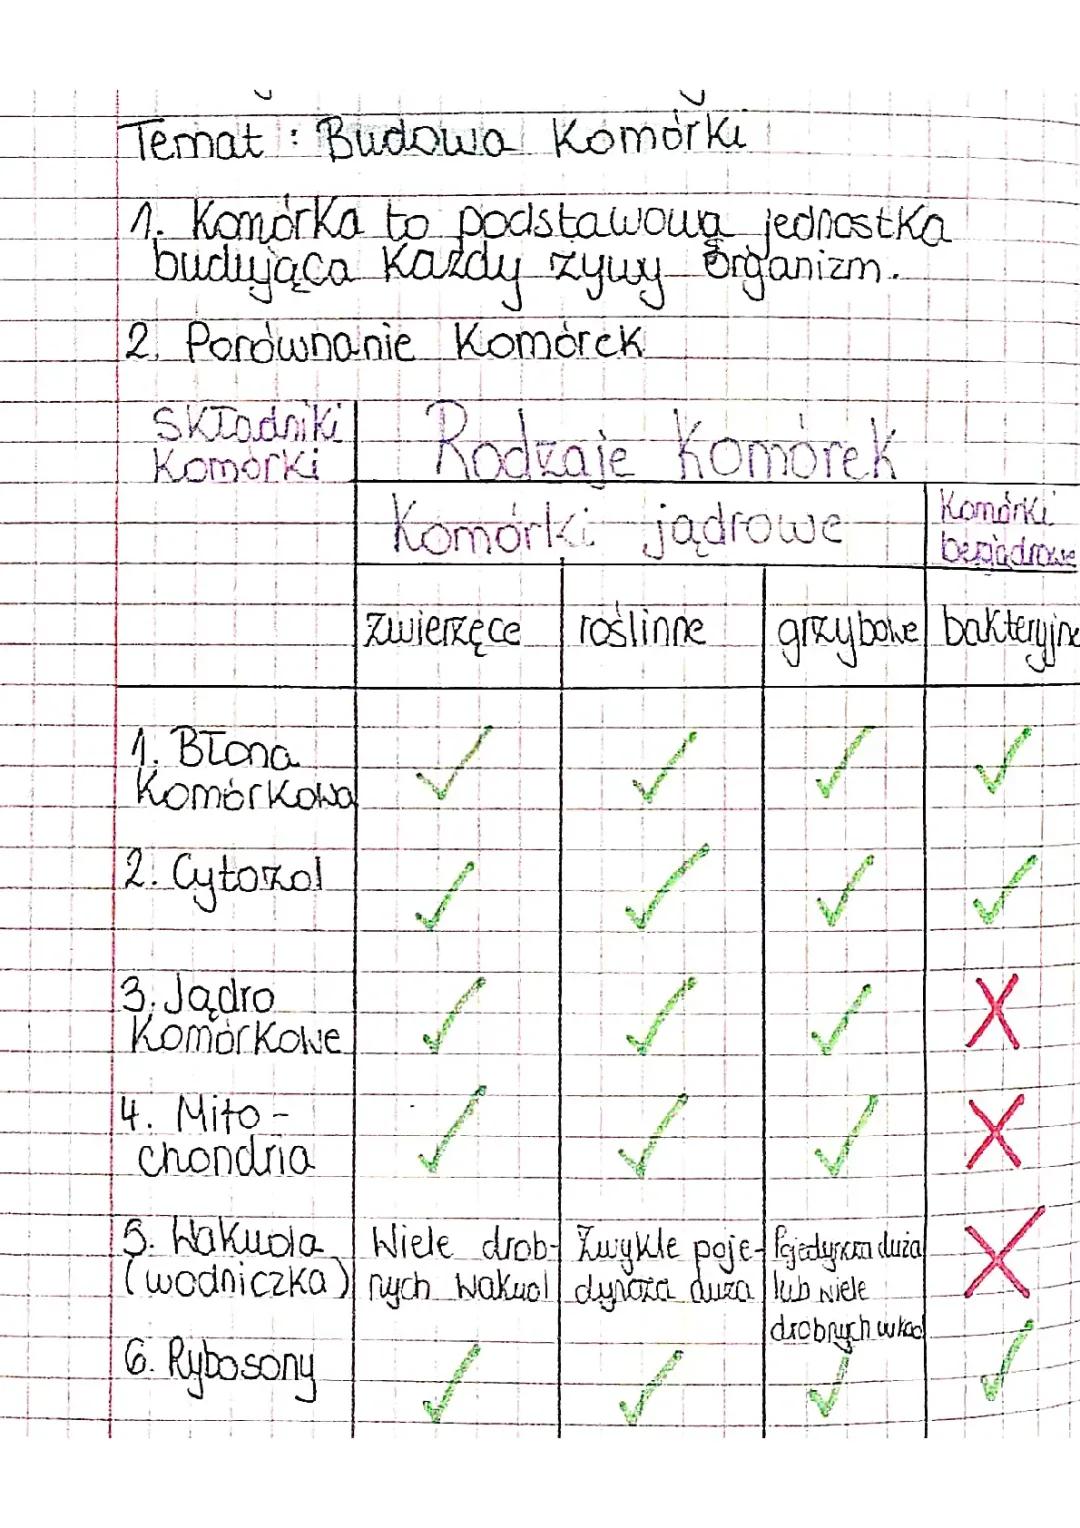 Temat : Budowa Komórki
1. Komórka to podstawowa jednostka
budująca Każdy żywy organizm.
2. Porównanie Komórek
Składniki
Komórki
Rodzaje Komórek
Komórki jądrowe
Komórki
bezjądrowe
zwierzęce
roślinne
grzybowe
bakteryjne
1. Błona
Komórkowa
2. Cytozol
3. Jądro
Komórkowe
4. Mito-
chondria
5. Wakuola
(wodniczka)
Wiele drob-
nych wakuol
Zwykle poje-
dyncza duża
Pojedyncza duża
lub wiele
drobnych wkuol
6. Rybosony